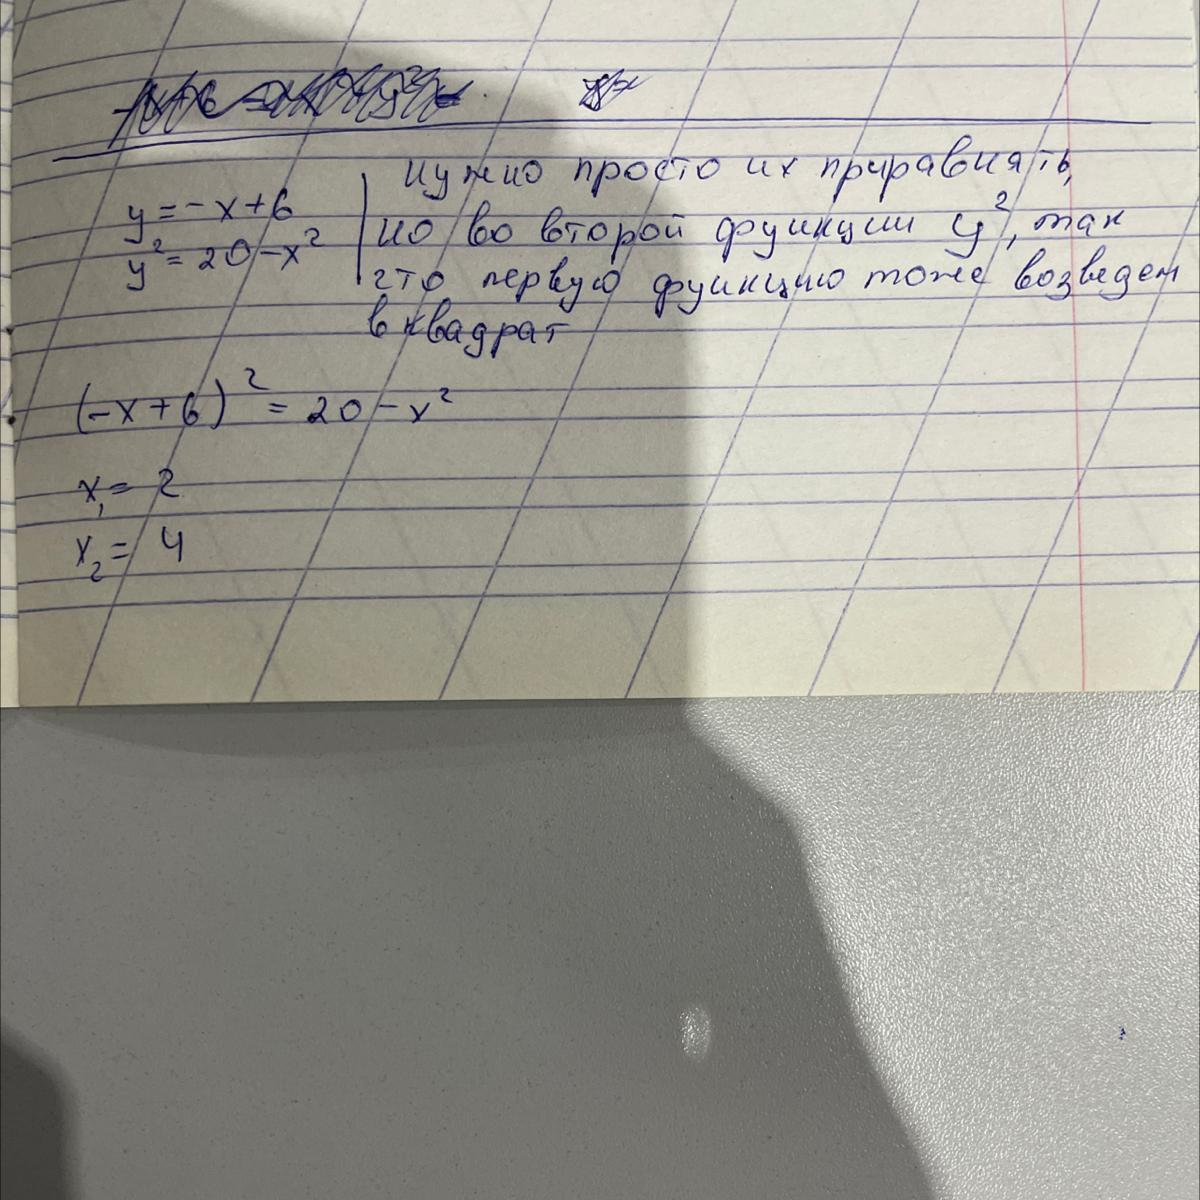 нужно просто их приравнять,
y = -x + 6
но во второй функции y², так
y² = 20 - x²
что первую функцию тоже возведем
в квадрат
(-x + 6)² = 20 - x²
x₁ = 2
x₂ = 4